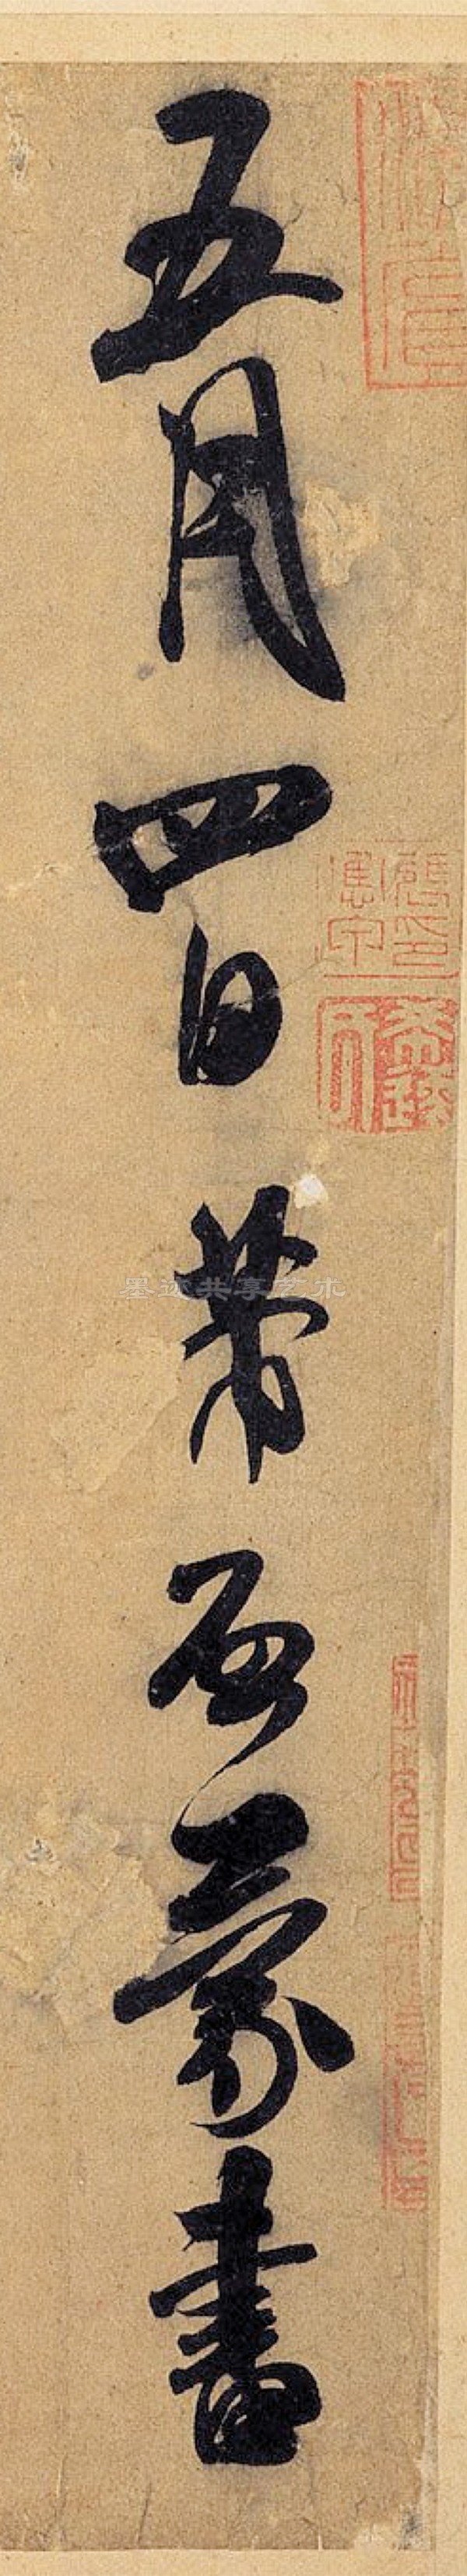 五月四日芾启蒙書
墨迹共享艺术